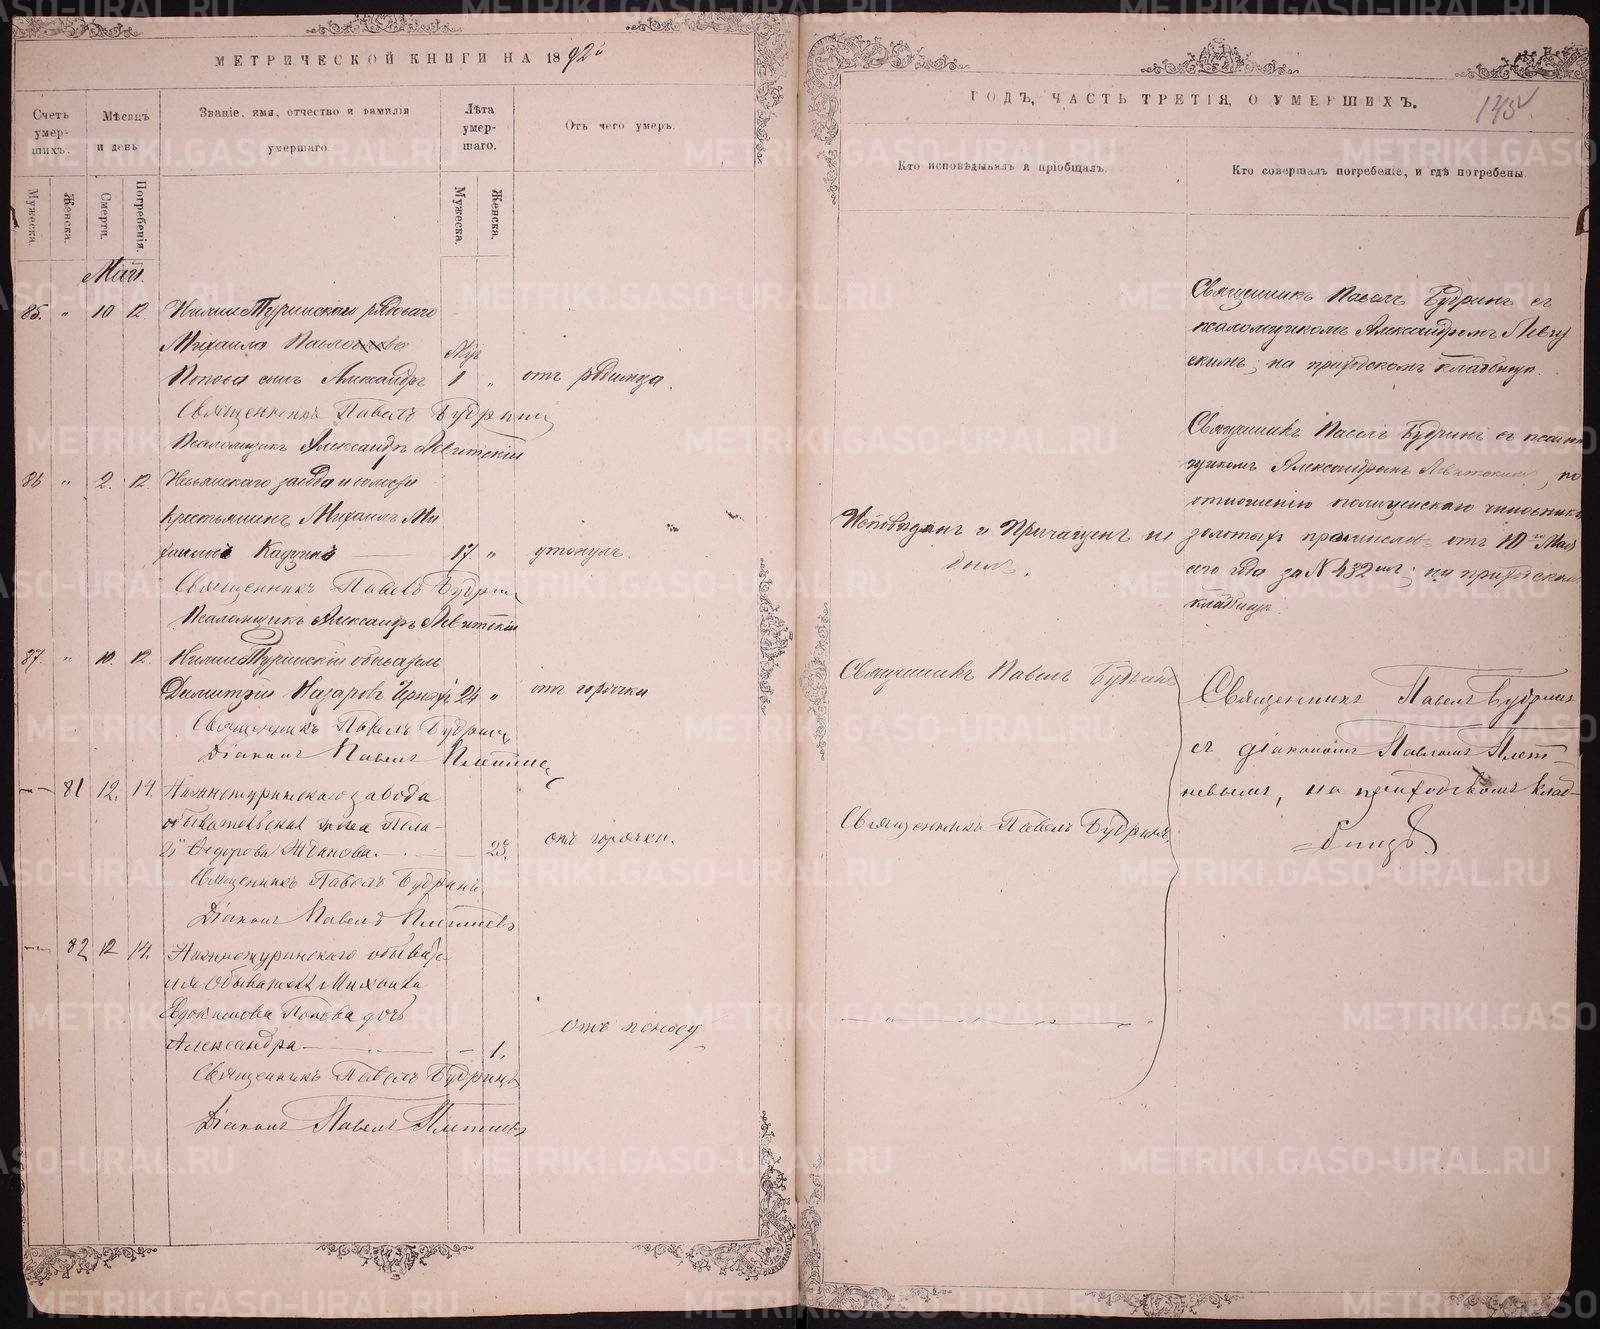 МЕТРИЧЕСКОЙ КНИГИ НА 1892й
Счетъ умершихъ.
Мѣсяцъ и день
Званіе, имя, отчество и фамилія умершаго.
Лѣта умершаго.
Отъ чего умеръ.
Мужеска.
Женска.
Смерти.
Погребенія.
Мужеска.
Женска.
Май.
85. " 10 12. Нижне Туринскаго рядоваго
Михаила
Попова сынъ Александръ 1 " отъ родимца.
Священникъ Павелъ Будринъ
Псаломщикъ Александръ Левитскій
86 " 2. 12. Невьянскаго завода и волости
крестьянинъ Михаилъ Ми
хаиловъ 17 " утонулъ.
Священникъ Павелъ Будринъ
Псаломщикъ Александръ Левитскій
87. " 10. 12. Нижне Туринскій обыватель
Димитрій Назаровъ 24 " отъ горячки
Священникъ Павелъ Будринъ
Діаконъ Павелъ Плетневъ
— 81 12. 14. Нижнетуринскаго завода
обывательская жена Пела-
гія Ѳедорова Жданова. — 23. отъ горячки.
Священникъ Павелъ Будринъ
Діаконъ Павелъ Плетневъ
— 82 12 14. Нижнетуринскаго
обывателя Михаила
Евдокимова Попова дочь
Александра — 1. отъ поносу
Священникъ Павелъ Будринъ
Діаконъ Павелъ Плетневъ
ГОДЪ, ЧАСТЬ ТРЕТІЯ, О УМЕРШИХЪ.
145
Кто исповѣдывалъ и пріобщалъ.
Кто совершалъ погребеніе, и гдѣ погребены.
Священникъ Павелъ Будринъ съ
псаломщикомъ Александромъ Левит
скимъ; на приходскомъ кладбищѣ.
Исповѣданъ и Причащенъ не
былъ.
Священникъ Павелъ Будринъ съ псалом
щикомъ Александромъ Левитскимъ, по
отношенію полицейскаго чиновника
золотыхъ промысловъ отъ 10го Мая
сего года за N 432мъ; на приходскомъ
кладбищѣ.
Священникъ Павелъ Будринъ
Священникъ Павелъ Будринъ
съ діакономъ Павломъ Плет-
невымъ, на приходскомъ клад-
бищѣ.
Священникъ Павелъ Будринъ
METRIKI.GASO-URAL.RU